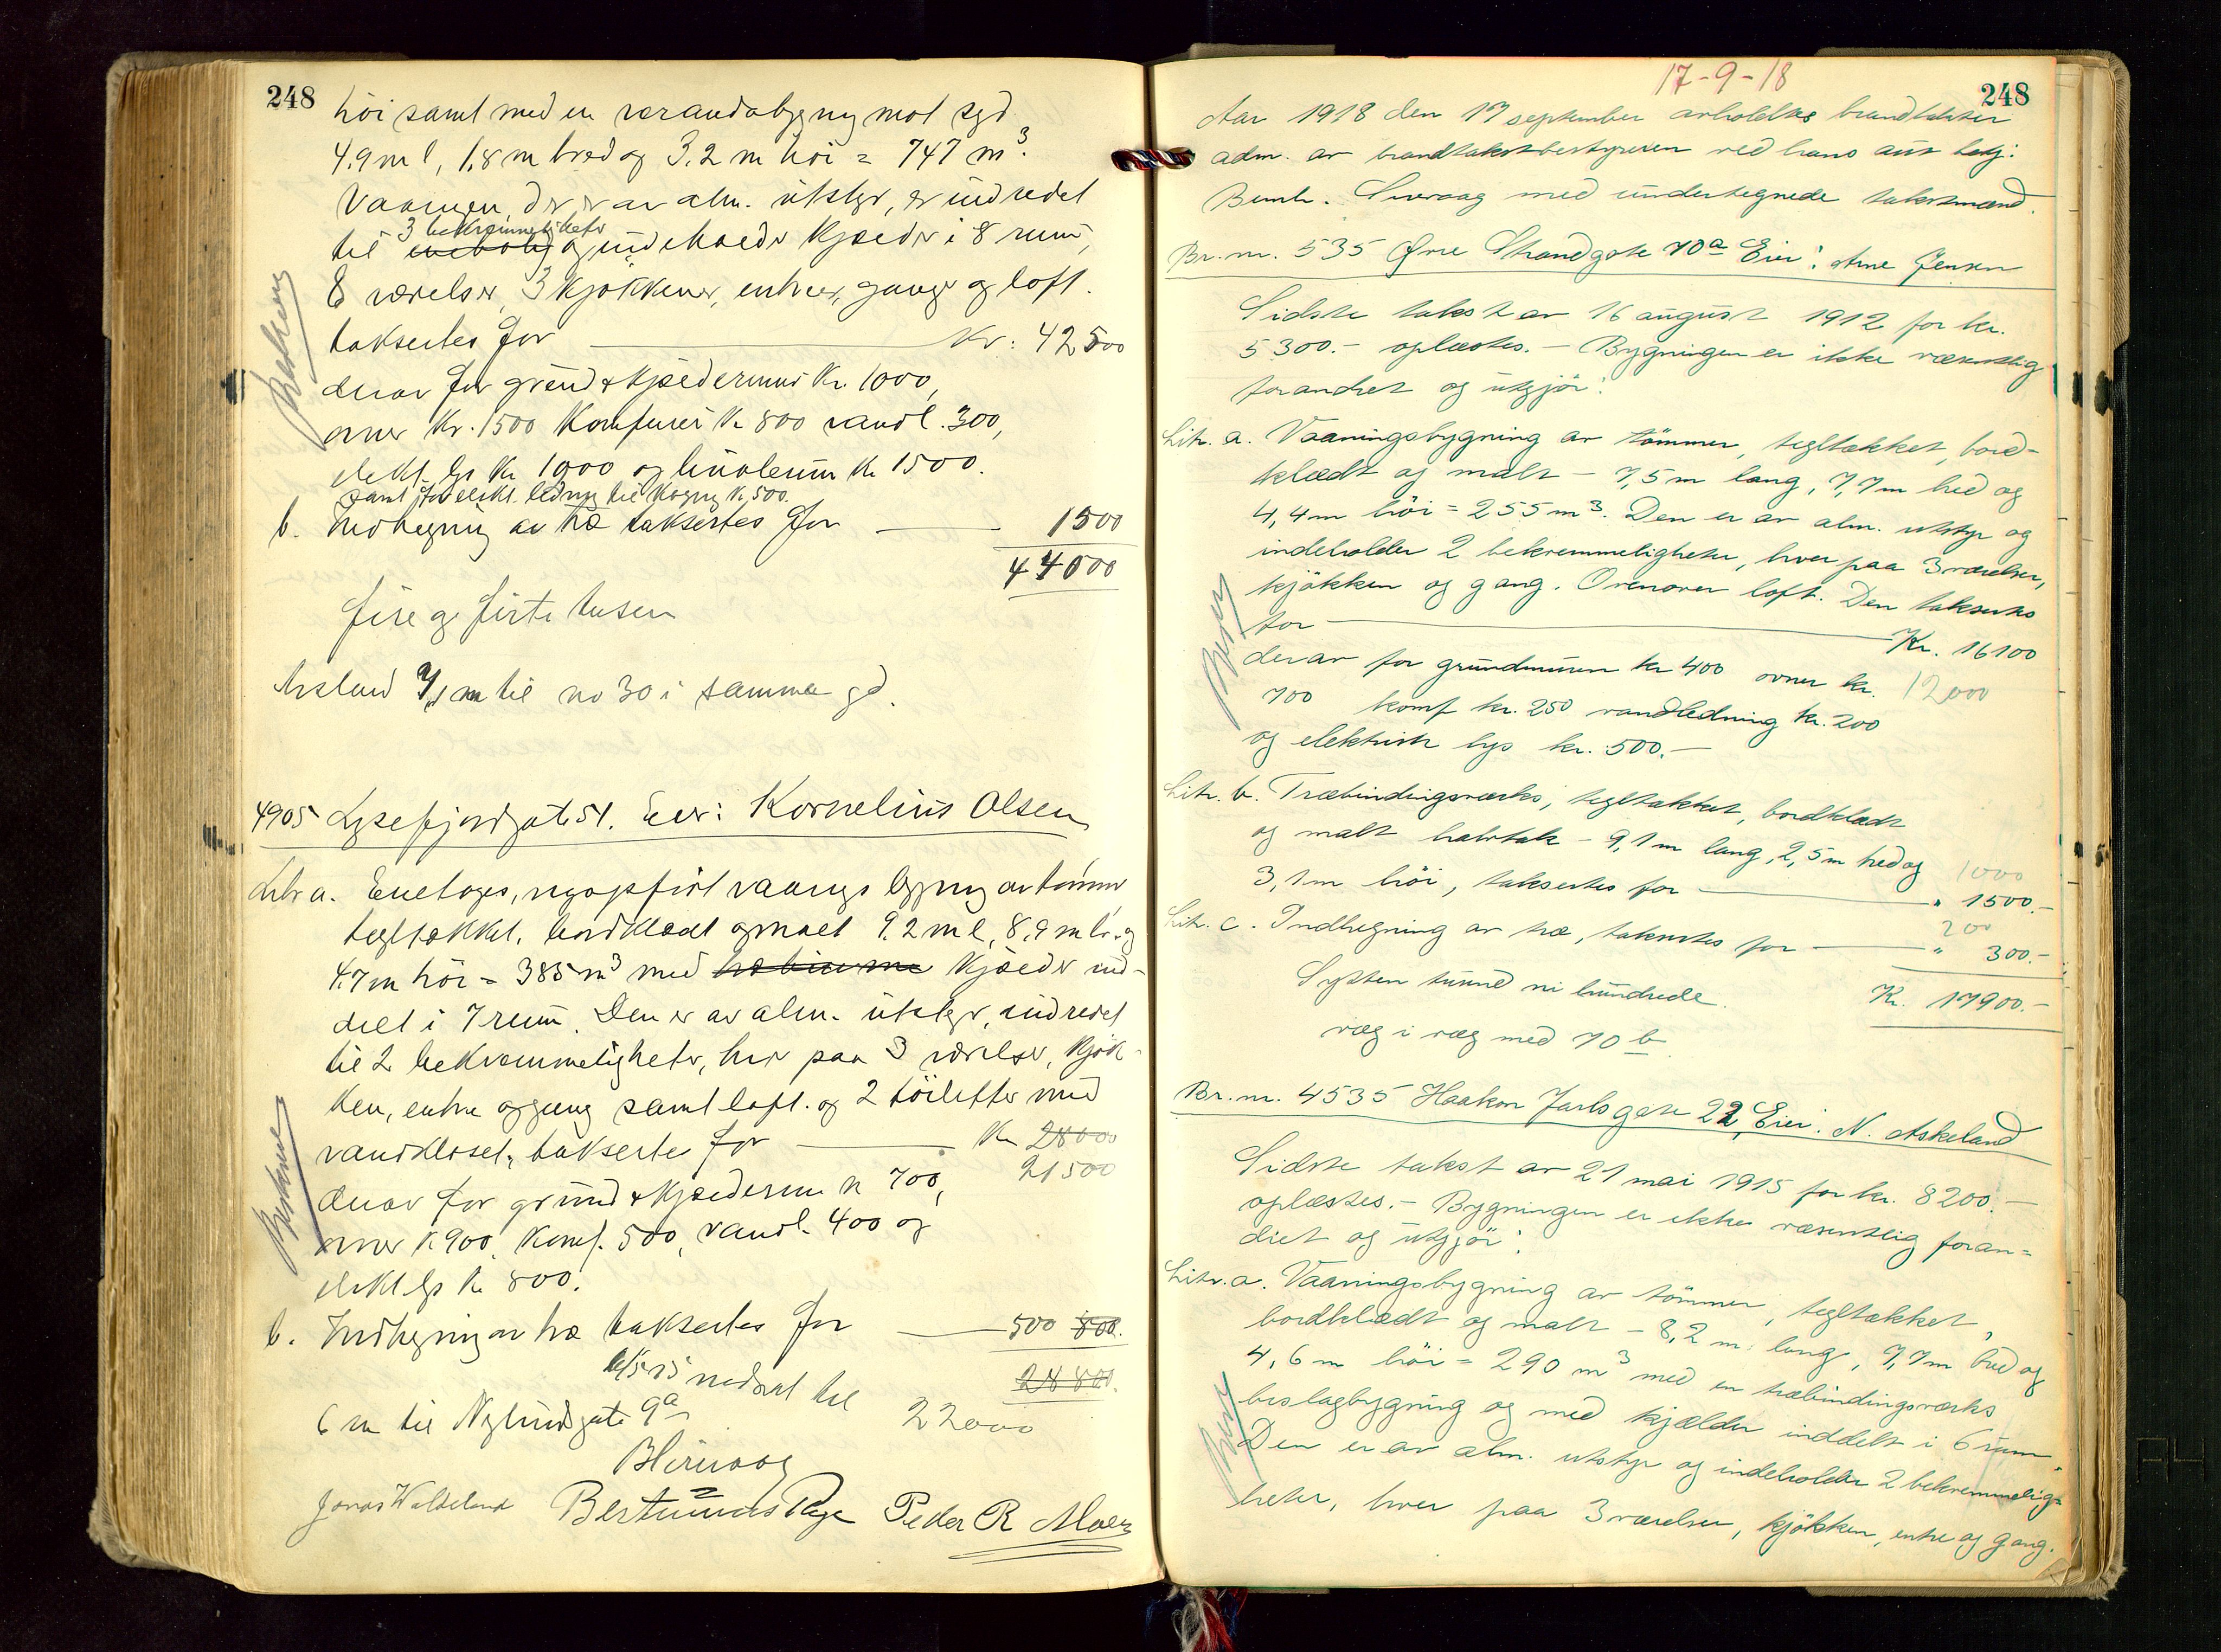 248
höi samt med en verandabygng mot syd
4.9 m l, 1,8 m bred og 3.2 m höi = 747 m³.
Vaaningen, der er av alm. utstyr, er indredet
3 bekvemmeligheter
til enebolig og indeholder kjælder i 8 rum,
8 værelser, 3 kjökkener, entreer, gange og loft.
taksertes for kr: 42500
derav for grund & kjældermur kr. 1000,
ovner kr. 1500 komfurer kr 800 vandl. 300,
elekt. lys kr 1000 og linoleum kr 1500.
samt for elekt. ledning til kogng kr. 500.
b. Indhegning av træ taksertes for 1500
44000
fire og firti tusen
Avstand 7,1 m til no 30 i samme gd.
4905 Lysefjordgate 51. Eier: Kornelius Olsen
Litr a. Enetages, nyopfört vaanings bygning av tömmer
tegltækket, bordklædt og malt 9.2 m l, 8,9 m br. og
4.7 m höi = 385 m³ med kjælder ind-
delt i 7 rum. Den er av alm. utstyr, indredet
til 2 bekvemmeligheter, hver paa 3 værelser, kjök-
ken, entre og gang samt loft. og 2 toiletter med
vandkloset, taksertes for Kr 28000
21500
derav for grund & kjældermur kr 700,
ovner kr 900, komf. 500, vandl. 400 og
elekt lys kr 800.
b. Indhegning av træ taksertes for 500 800.
nedsat til 28800.
6 m til Nylundsgate 9a 22000
BHerevaag
Jonas Waldeland Bertinius Rege Peder R Moen
17-9-18
248
Aar 1918 den 17 september avholdtes brandtakster
adm. av brandtakstbestyreren ved hans ass betj:
Bernh. Hervaag med undertegnede takstmænd.
Br. nr. 535 Øvre Strandgate 70a Eier: Arne Jensen
Sidste takst av 16 august 1912 for kr.
5300.- oplæstes. - Bygningen er ikke væsentlig
forandret og utgjör:
Litr. a. Vaaningsbygning av tömmer, tegltækket, bord-
klædt og malt - 7,5 m lang, 7,7 m bred og
4,4 m höi = 255 m³. Den er av alm. utstyr og
indeholder 2 bekvemmeligheter, hver paa 3 værelser,
kjökken og gang. Ovenover loft. Den taksertes
for Kr. 16100
derav for grundmuren kr 400 ovner kr. 12000
700 komf kr. 250 vandledning kr. 200
og elektrisk lys kr. 500.-
Litr. b. Træbindingsværks, tegltækket, bordklædt
og malt halvtak - 9,1 m lang, 2,5 m bred og 1000
3,1 m höi, taksertes for " 1500.-
200
Litr. c. Indhegning av træ, taksertes for " 300.-
Sytten tusind ni hundrede. Kr. 17900.-
væg i væg med 70 b
Br. nr. 4535 Haakon Jarls gate 22, Eier: N. Askeland
Sidste takst av 21 mai 1915 for kr. 8200.-
oplæstes. - Bygningen er ikke væsentlig foran=
dret og utgjör:
Litr. a. Vaaningsbygning av tömmer, tegltækket,
bordklædt og malt - 8,2 m lang, 7,7 m bred og
4,6 m höi = 290 m³ med en træbindingsværks
beslagbygning og med kjælder inddelt i 6 rum.
Den er av alm. utstyr og indeholder 2 bekvemmelig=
heter, hver paa 3 værelser, kjökken, entre og gang.